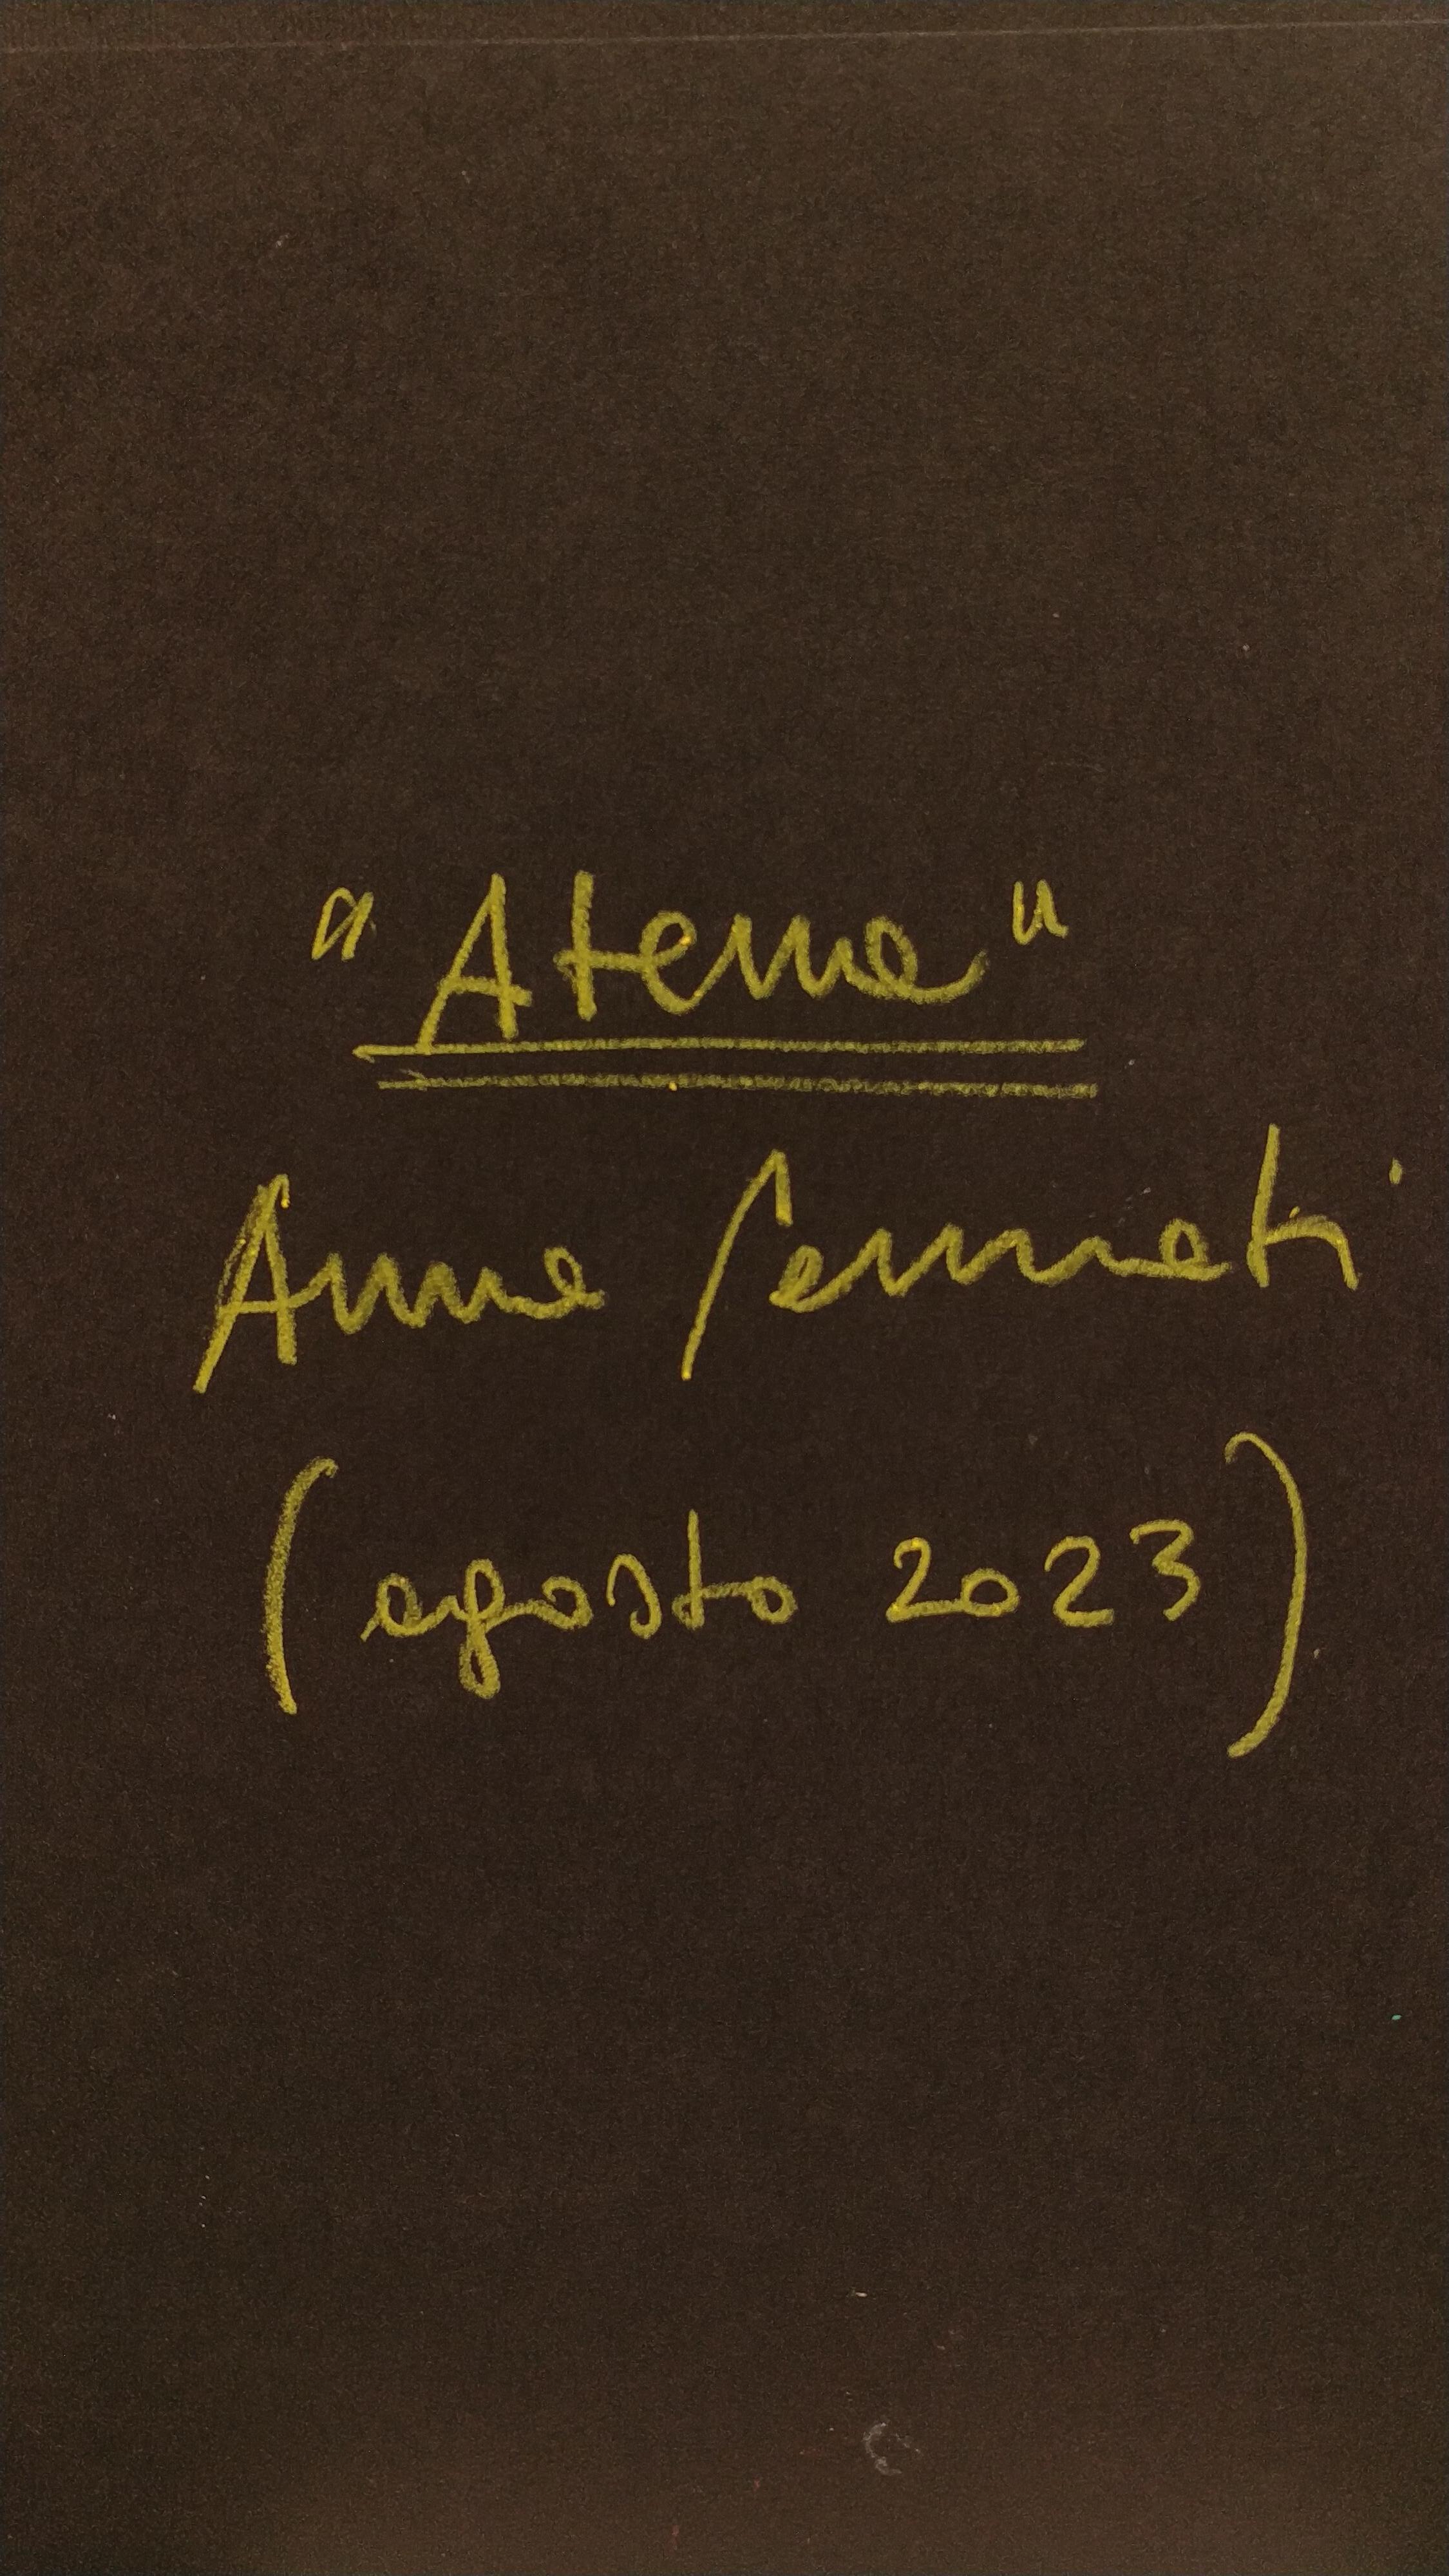 "Atena"
Anna
(agosto 2023)